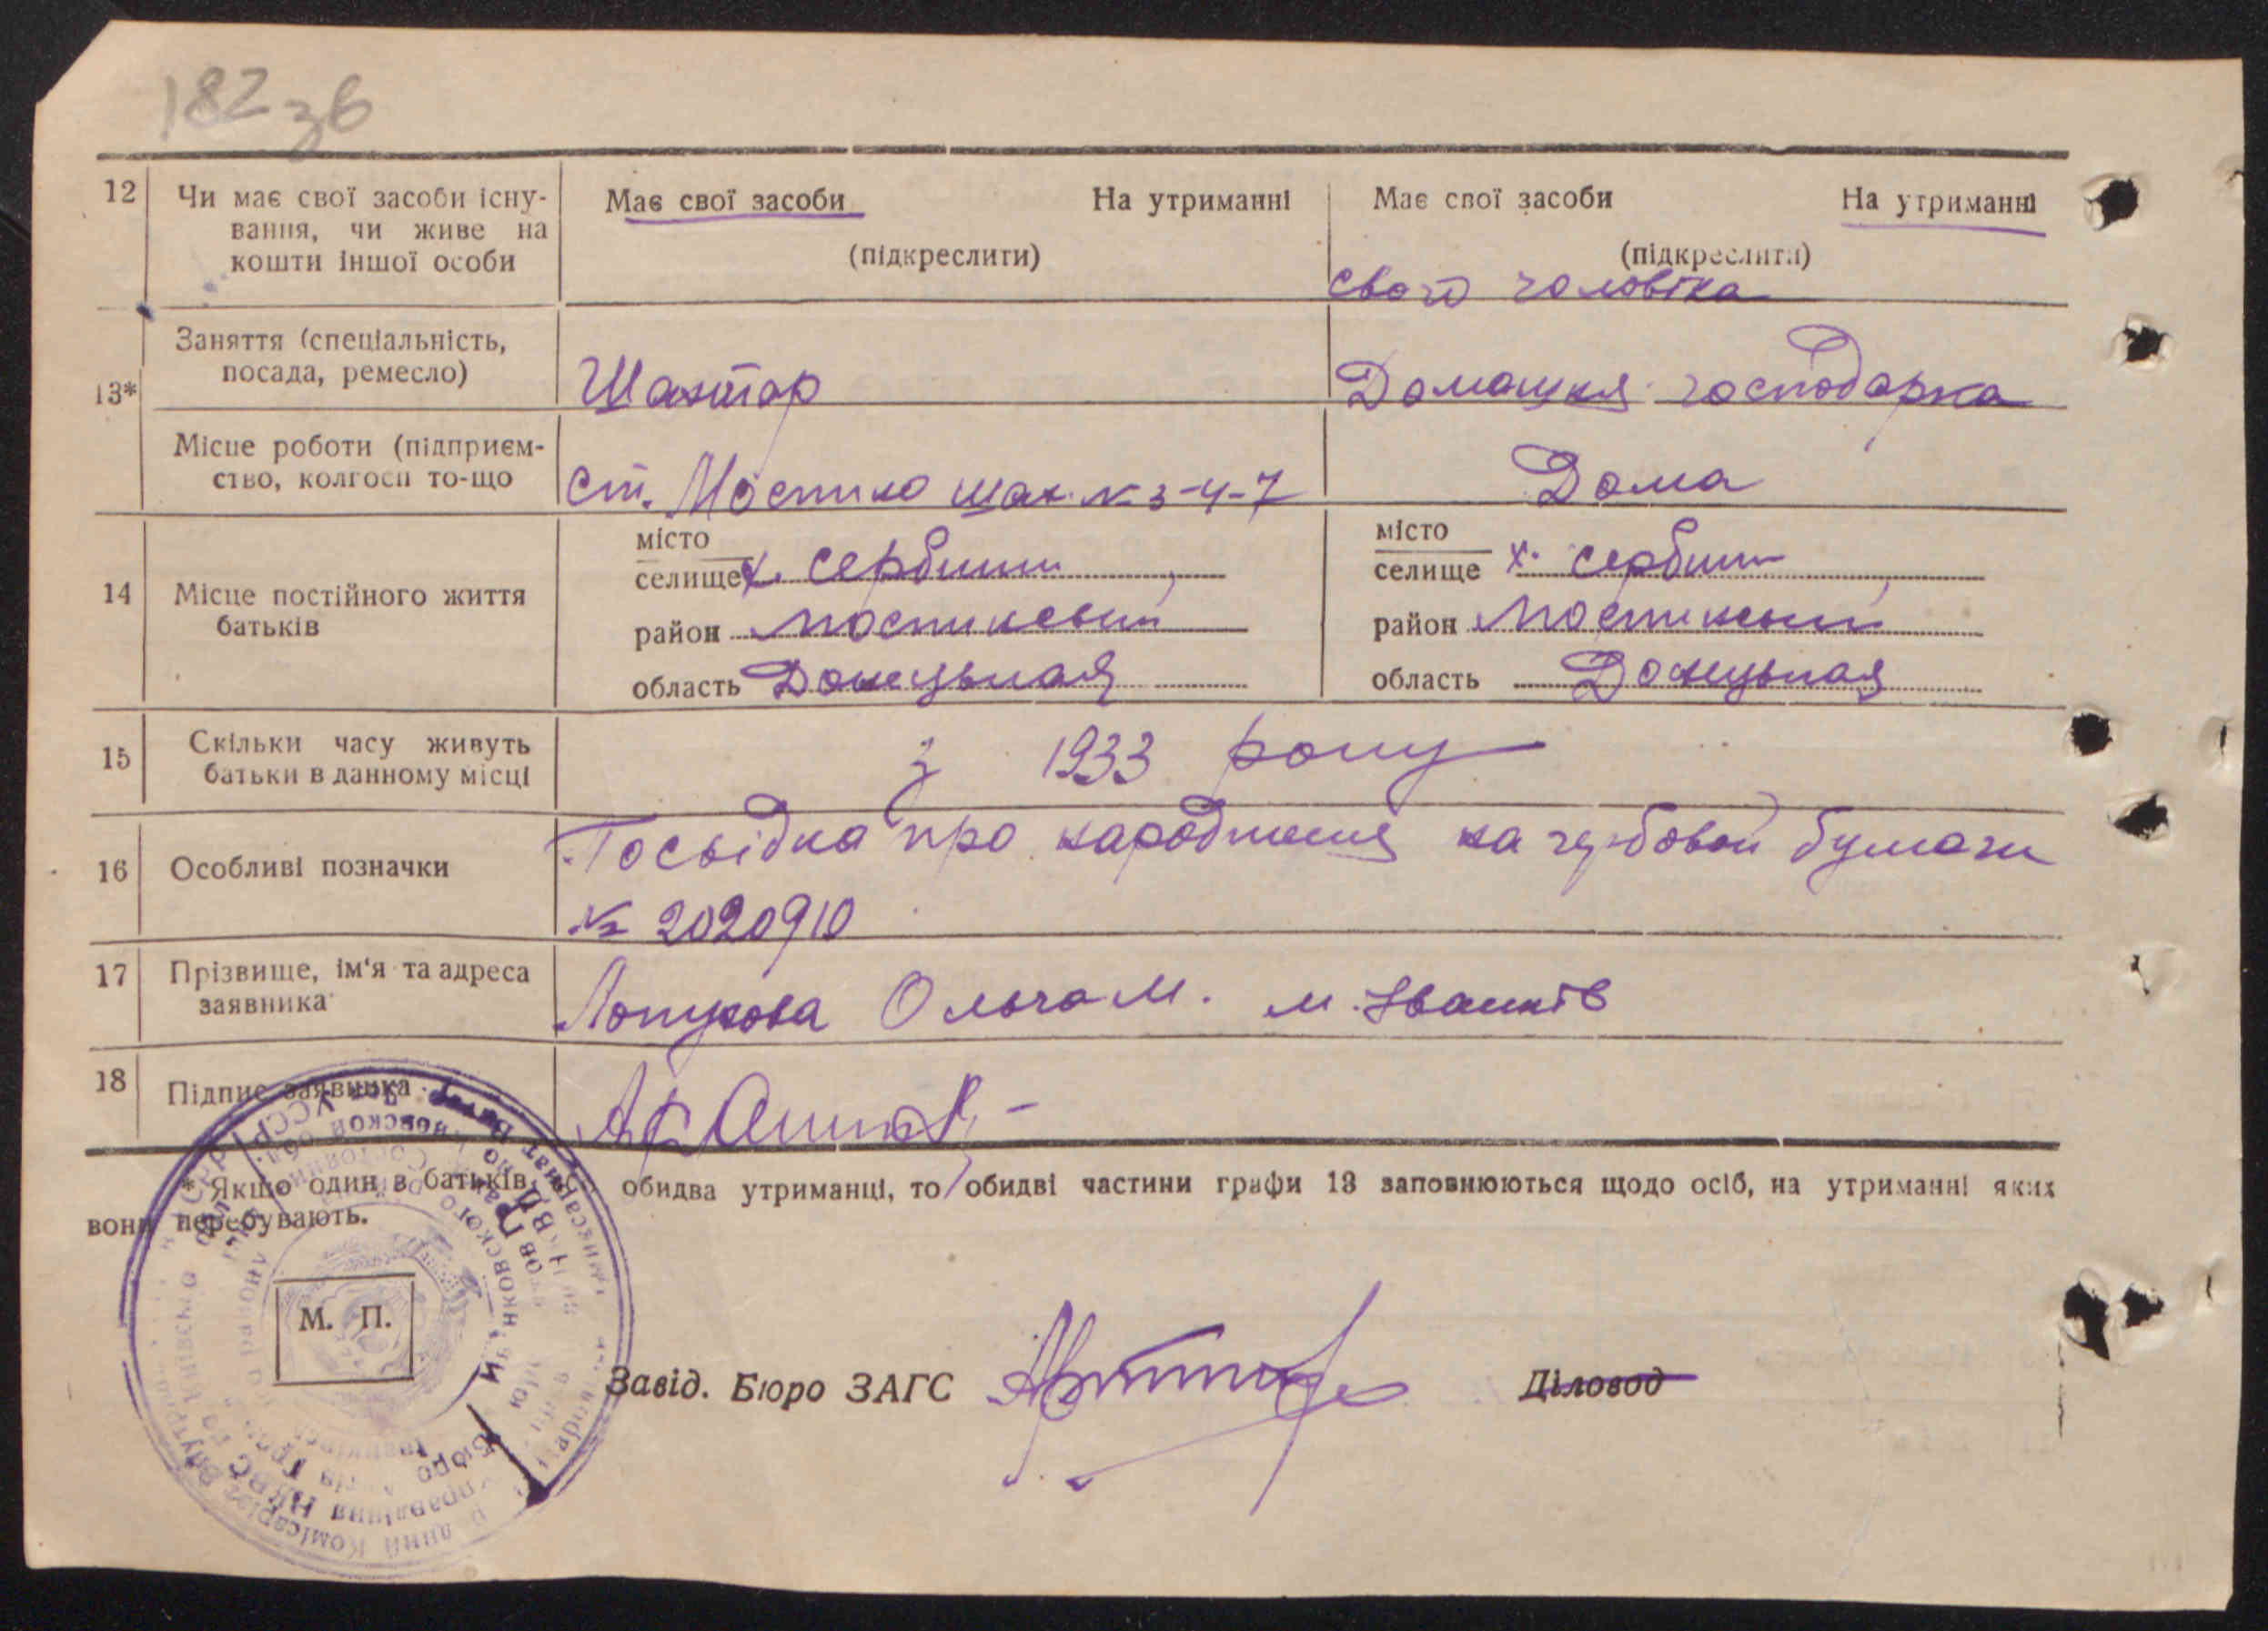 182 зв
12 Чи має свої засоби існу- Має свої засоби На утриманні Має свої засоби На утриманні
вання, чи живе на (підкреслити) (підкреслити)
кошти іншої особи свого чоловіка
13* Заняття (спеціальність,
посада, ремесло) Шахтар Домашня господарка
Місце роботи (підприєм-
ство, колгосп то-що ст. Мостико шах. № 3-4-7 Дома
14 Місце постійного життя
батьків
місто
селище х. Сербин
район
область Донецькая
місто
селище х. Сербин
район
область Донецькая
15 Скільки часу живуть
батьки в данному місці з 1933 року
16 Особливі позначки Посвідка про народження на бумаги
№ 2020910
17 Прізвище, ім'я та адреса
заявника Ольга М. м. Іванків
18 Підпис заявника
* Якщо один в батьків обидва утриманці, то обидві частини графи 13 заповнюються щодо осіб, на утриманні яких
вони перебувають.
М. П.
Завід. Бюро ЗАГС Діловод